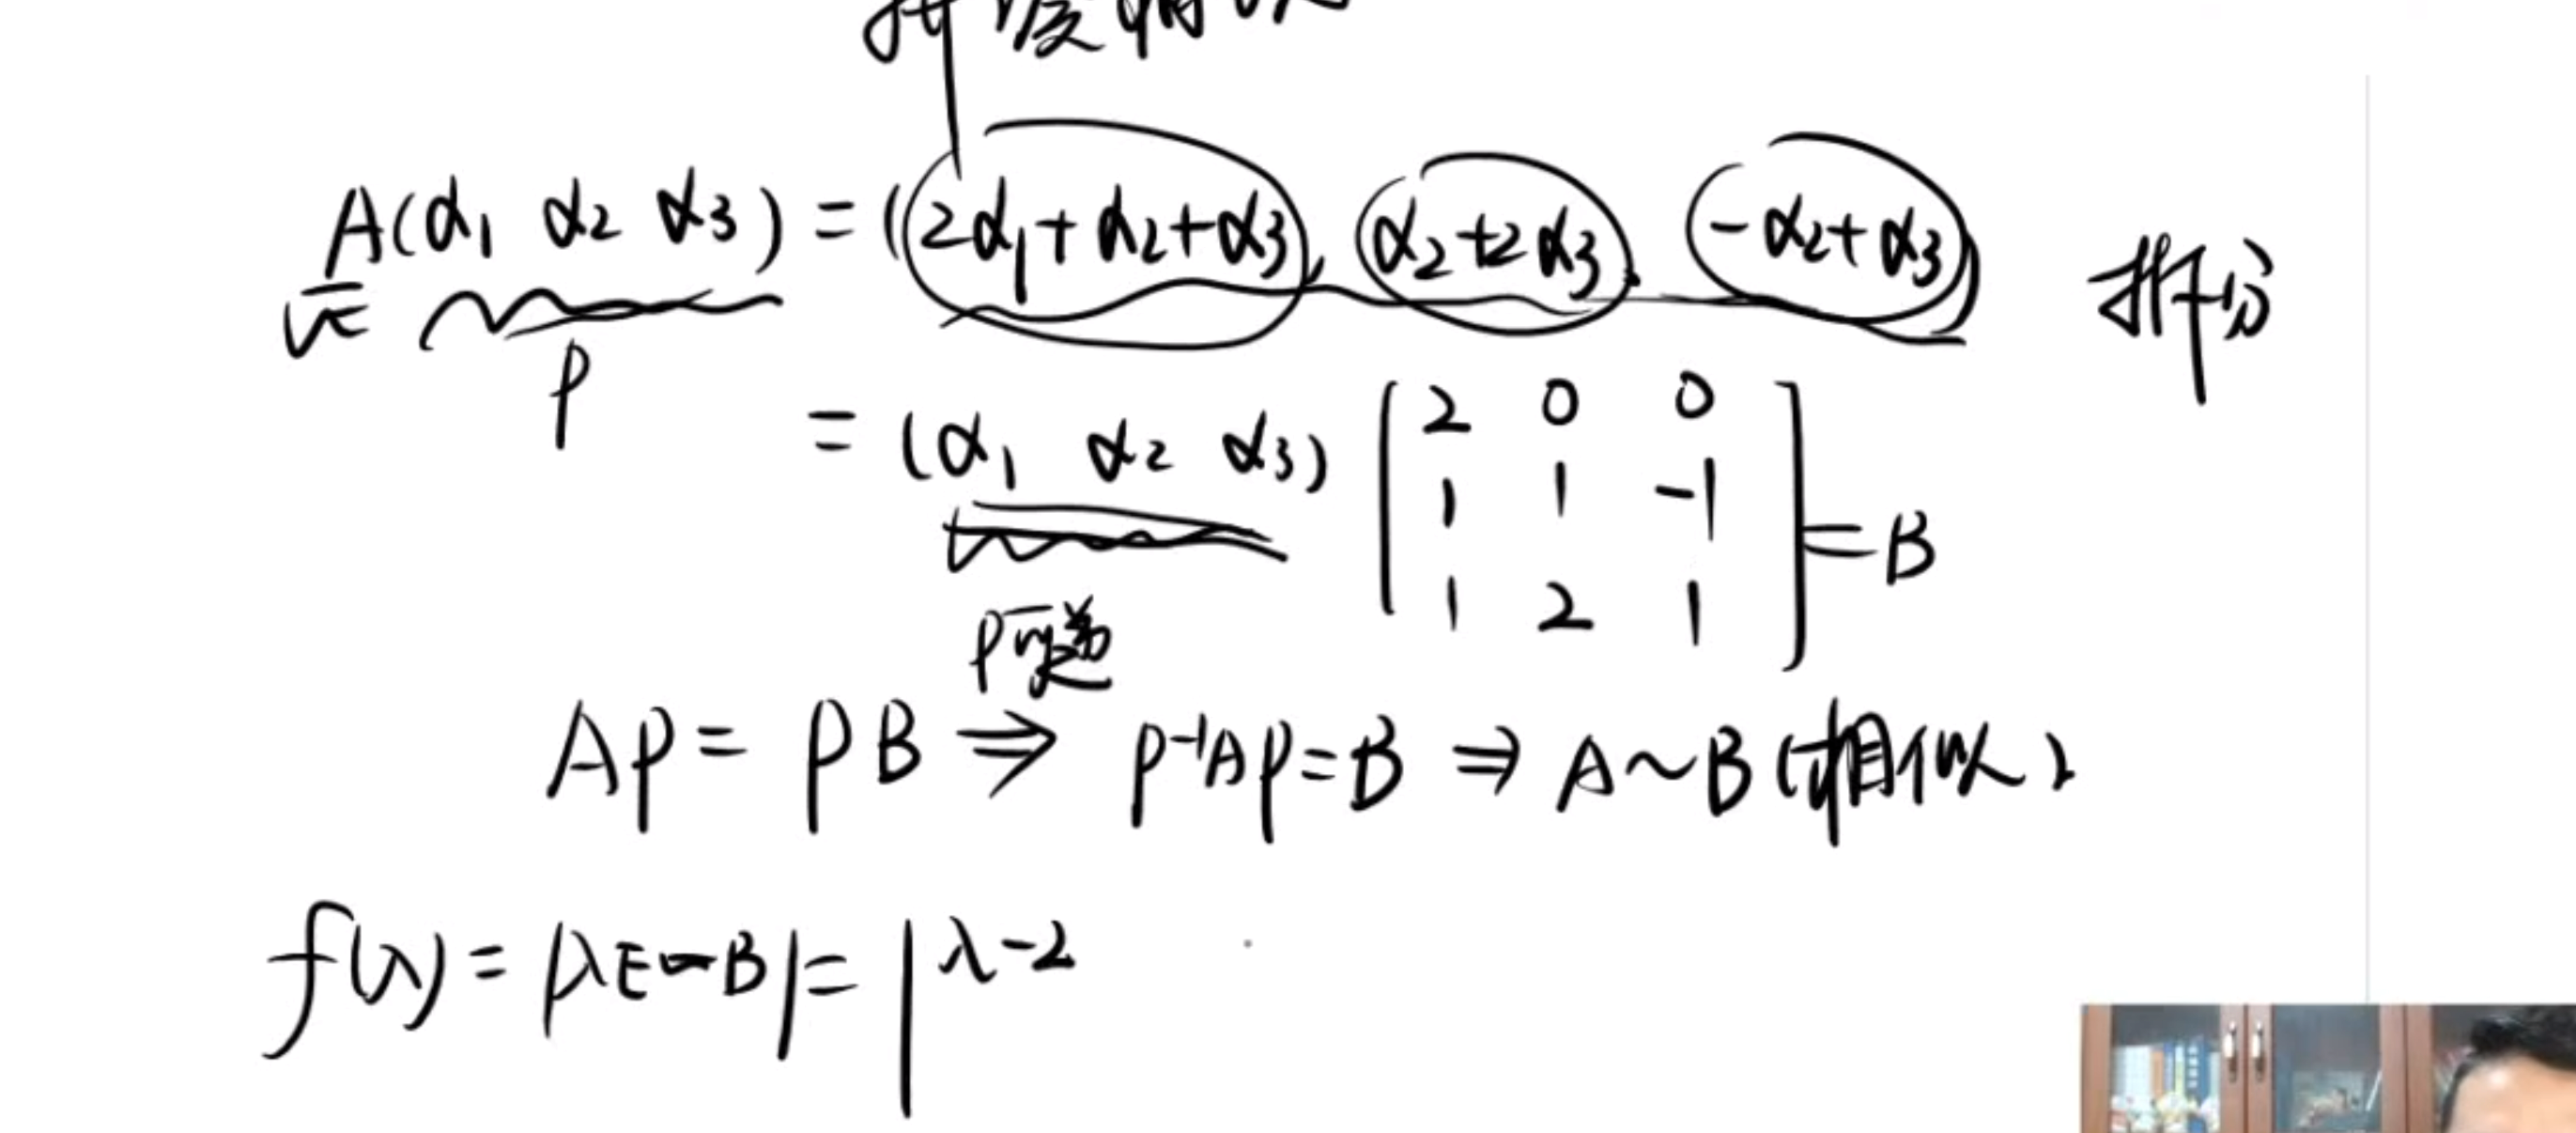 A(α1 α2 α3) = (2α1+α2+α3, α2+2α3, -α2+α3) 拆分
P
= (α1 α2 α3) [2 0 0
1 1 -1
1 2 1] = B
P可逆
AP = PB ⇒ P⁻¹AP = B ⇒ A~B (相似)
f(λ) = |λE-B| = |λ-2